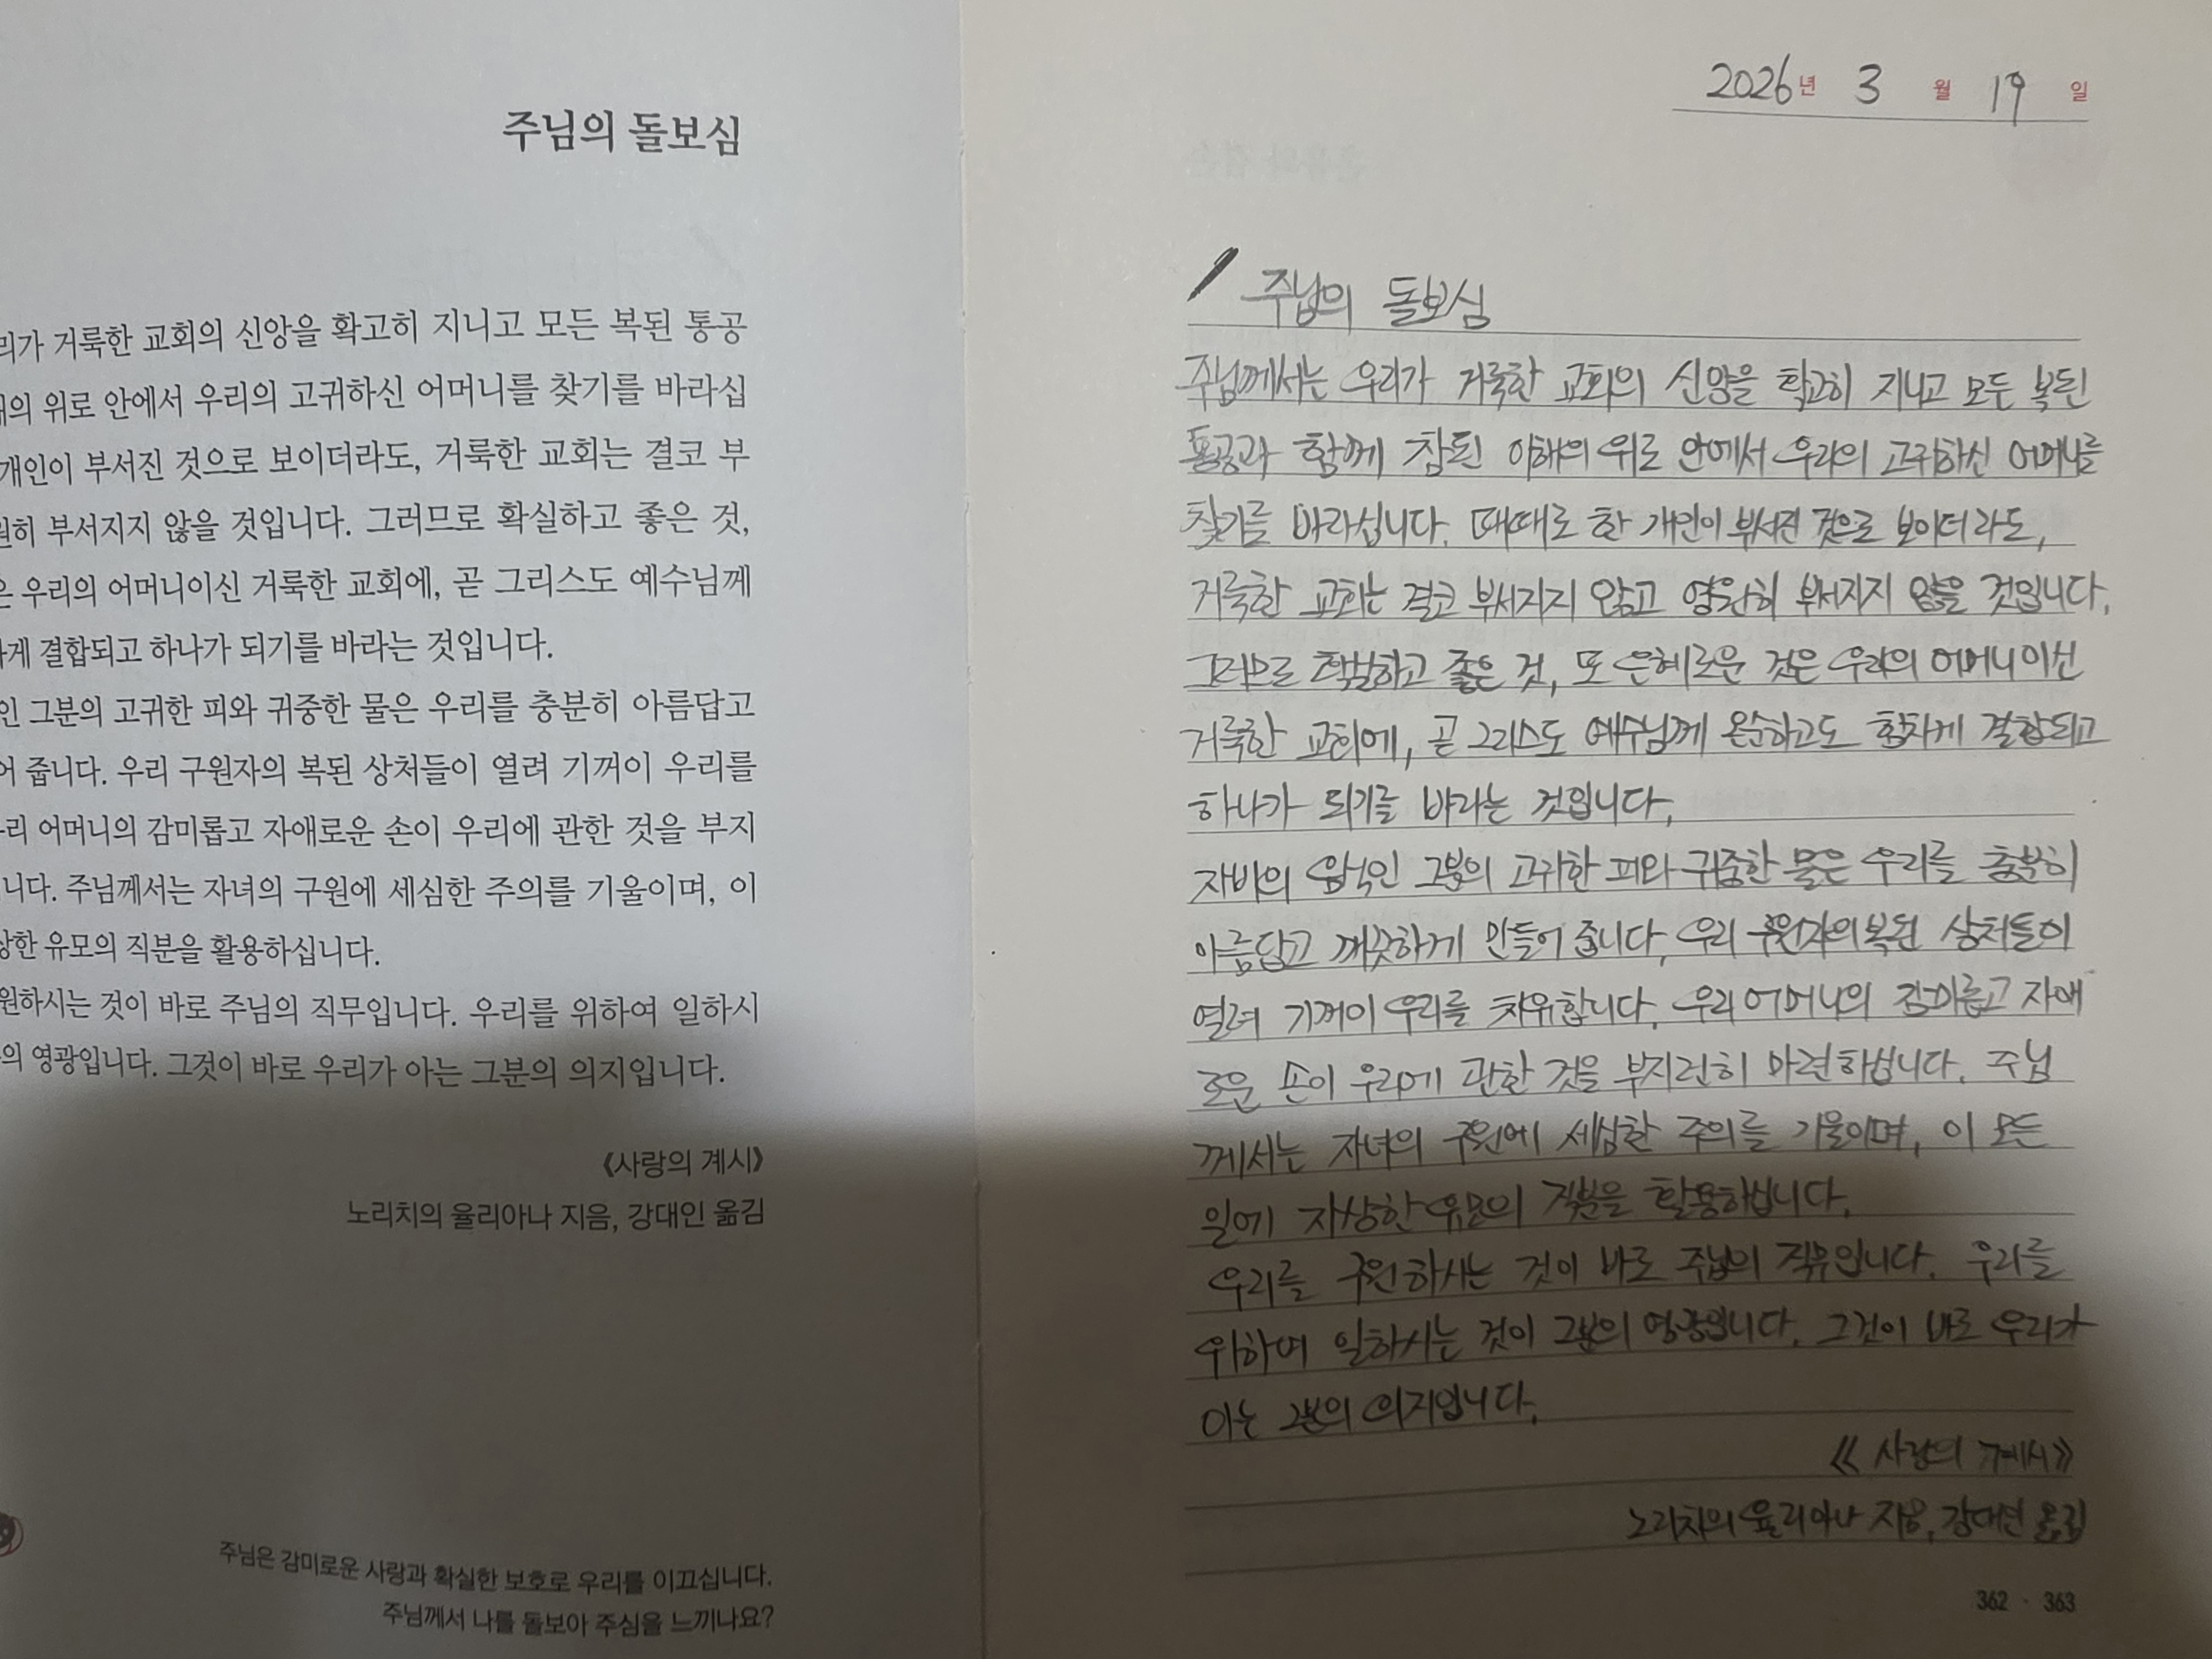 주님의 돌보심
리가 거룩한 교회의 신앙을 확고히 지니고 모든 복된 통공
해의 위로 안에서 우리의 고귀하신 어머니를 찾기를 바라십
개인이 부서진 것으로 보이더라도, 거룩한 교회는 결코 부
원히 부서지지 않을 것입니다. 그러므로 확실하고 좋은 것,
은 우리의 어머니이신 거룩한 교회에, 곧 그리스도 예수님께
게 결합되고 하나가 되기를 바라는 것입니다.
인 그분의 고귀한 피와 귀중한 물은 우리를 충분히 아름답고
어 줍니다. 우리 구원자의 복된 상처들이 열려 기꺼이 우리를
리 어머니의 감미롭고 자애로운 손이 우리에 관한 것을 부지
니다. 주님께서는 자녀의 구원에 세심한 주의를 기울이며, 이
상한 유모의 직분을 활용하십니다.
원하시는 것이 바로 주님의 직무입니다. 우리를 위하여 일하시
의 영광입니다. 그것이 바로 우리가 아는 그분의 의지입니다.
《사랑의 계시》
노리치의 율리아나 지음, 강대인 옮김
주님은 감미로운 사랑과 확실한 보호로 우리를 이끄십니다.
주님께서 나를 돌보아 주심을 느끼나요?
2026년 3 월 19 일
주님의 돌보심
주님께서는 우리가 거룩한 교회의 신앙을 확고히 지니고 모든 복된
통공과 함께 참된 이해의 위로 안에서 우리의 고귀하신 어머니를
찾기를 바라십니다. 때때로 한 개인이 부서진 것으로 보이더라도,
거룩한 교회는 결코 부서지지 않고 영원히 부서지지 않을 것입니다.
그러므로 확실하고 좋은 것, 또 은혜로운 것은 우리의 어머니이신
거룩한 교회에, 곧 그리스도 예수님께 온순하고도 힘차게 결합되고
하나가 되기를 바라는 것입니다.
자비의 음식인 그분의 고귀한 피와 귀중한 물은 우리를 충분히
아름답고 깨끗하게 만들어 줍니다. 우리 구원자의 복된 상처들이
열려 기꺼이 우리를 치유합니다. 우리 어머니의 감미롭고 자애
로운 손이 우리에 관한 것을 부지런히 마련하십니다. 주님
께서는 자녀의 구원에 세심한 주의를 기울이며, 이 모든
일에 자상한 유모의 직분을 활용하십니다.
우리를 구원하시는 것이 바로 주님의 직무입니다. 우리를
위하여 일하시는 것이 그분의 영광입니다. 그것이 바로 우리가
아는 그분의 의지입니다.
《사랑의 계시》
노리치의 율리아나 지음, 강대인 옮김
362 · 363